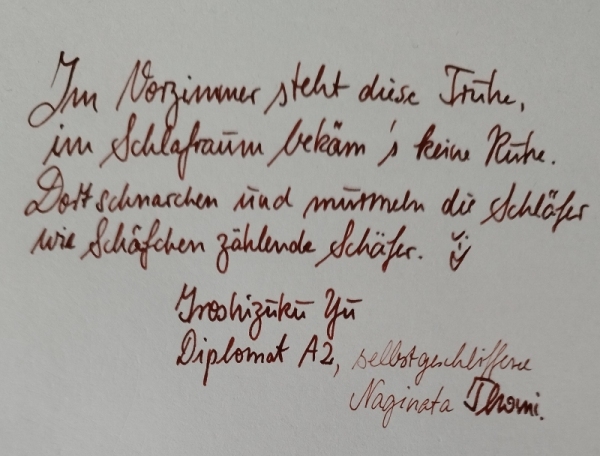 Im Vorzimmer steht diese Truhe,
im Schlafraum bekäm's keine Ruhe.
Dort schnarchen und murmeln die Schläfer
wie Schäfchen zählende Schäfer.
Iroshizuku Yu
Diplomat A2, selbstgeschliffene
Naginata Thomi.